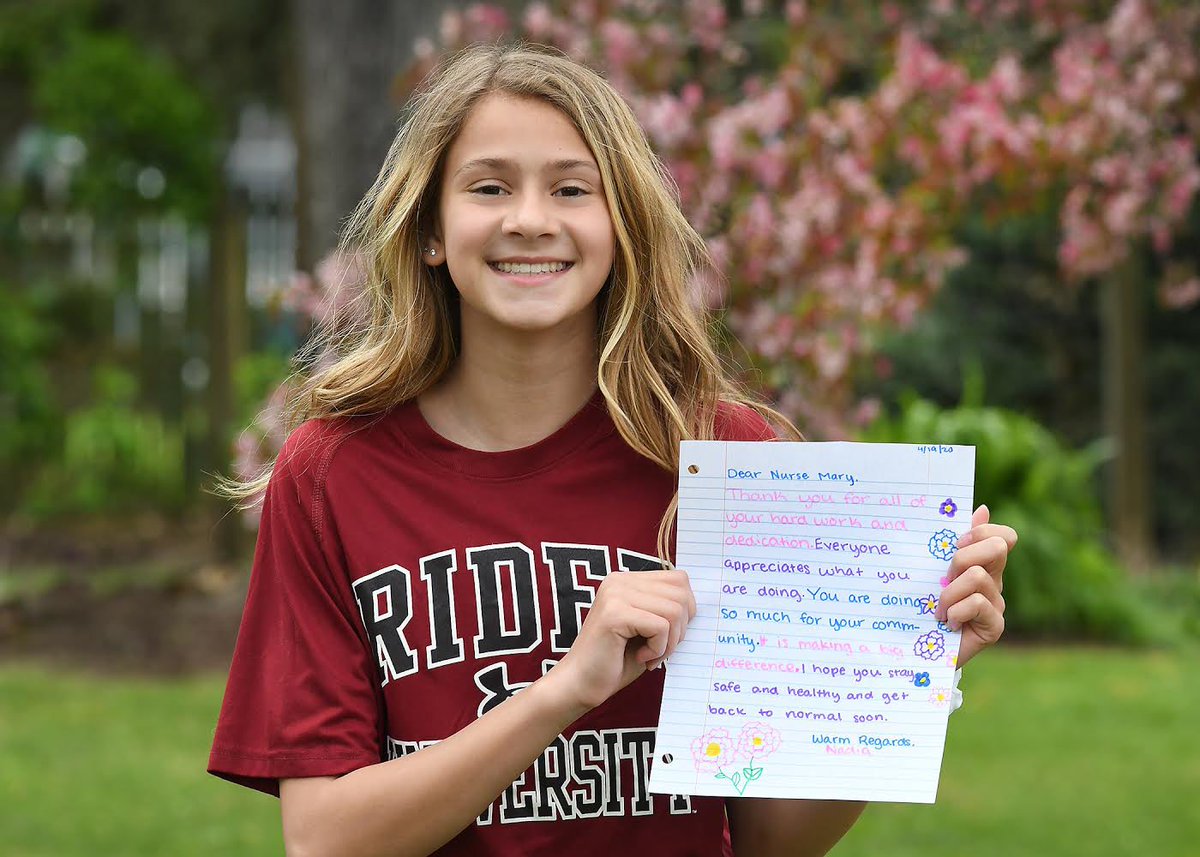 RIDER
UNIVERSITY
4/19/20
Dear Nurse Mary,
Thank you for all of
your hard work and
dedication. Everyone
appreciates what you
are doing. You are doing
so much for your comm-
unity. It is making a big
difference. I hope you stay
safe and healthy and get
back to normal soon.
Warm Regards,
Nadia